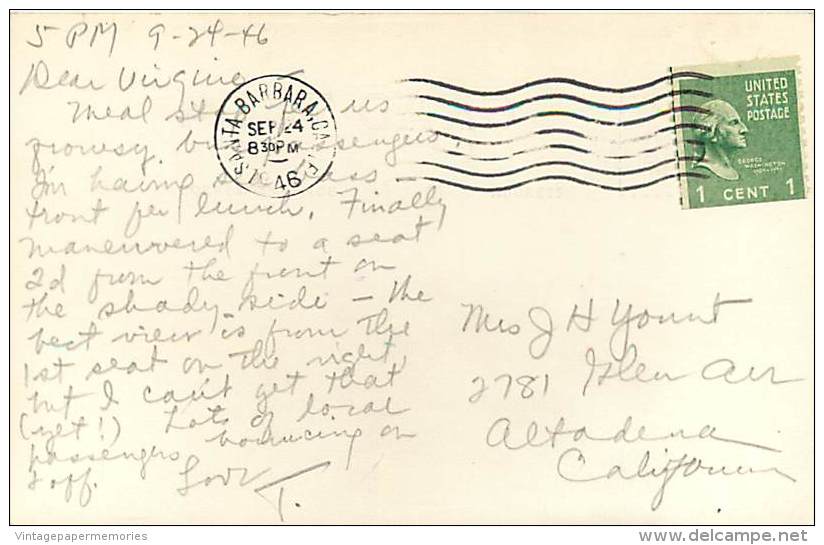 5 PM 9-24-46
Dear Virginia -
Meal stop for us
passengers,
I'm having
front for lunch. Finally
maneuvered to a seat
2d from the front on
the shady side - the
best view is from the
1st seat on the right,
but I can't get that
(yet!) Lots of local
passengers bouncing on
& off. Love
T.
SANTA BARBARA, CALIF.
SEP 24
8 30 PM
46
UNITED
STATES
POSTAGE
GEORGE
WASHINGTON
1 CENT 1
Mrs J H Yount
2781 Glen Ave
Altadena
California
Vintagepapermemories
delcampe.net